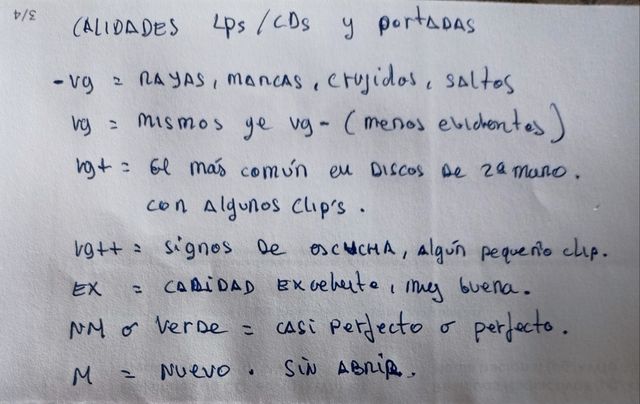 3/4
CALIDADES Lps/CDs y PORTADAS
-vg = RAYAS, MARCAS, crujidos, saltos
vg = mismos qe vg- (menos evidentes)
vg+ = el más común en DISCOS DE 2ª mano.
con Algunos Clip's.
vg++ = signos De escucha, Algún pequeño clip.
EX = CALIDAD Excelente, muy buena.
NM o Verde = casi perfecto o perfecto.
M = Nuevo. Sin Abrir.